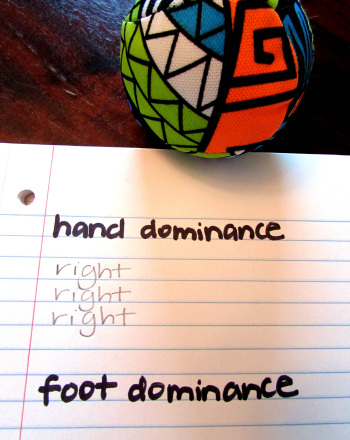 hand dominance
right
right
right
foot dominance